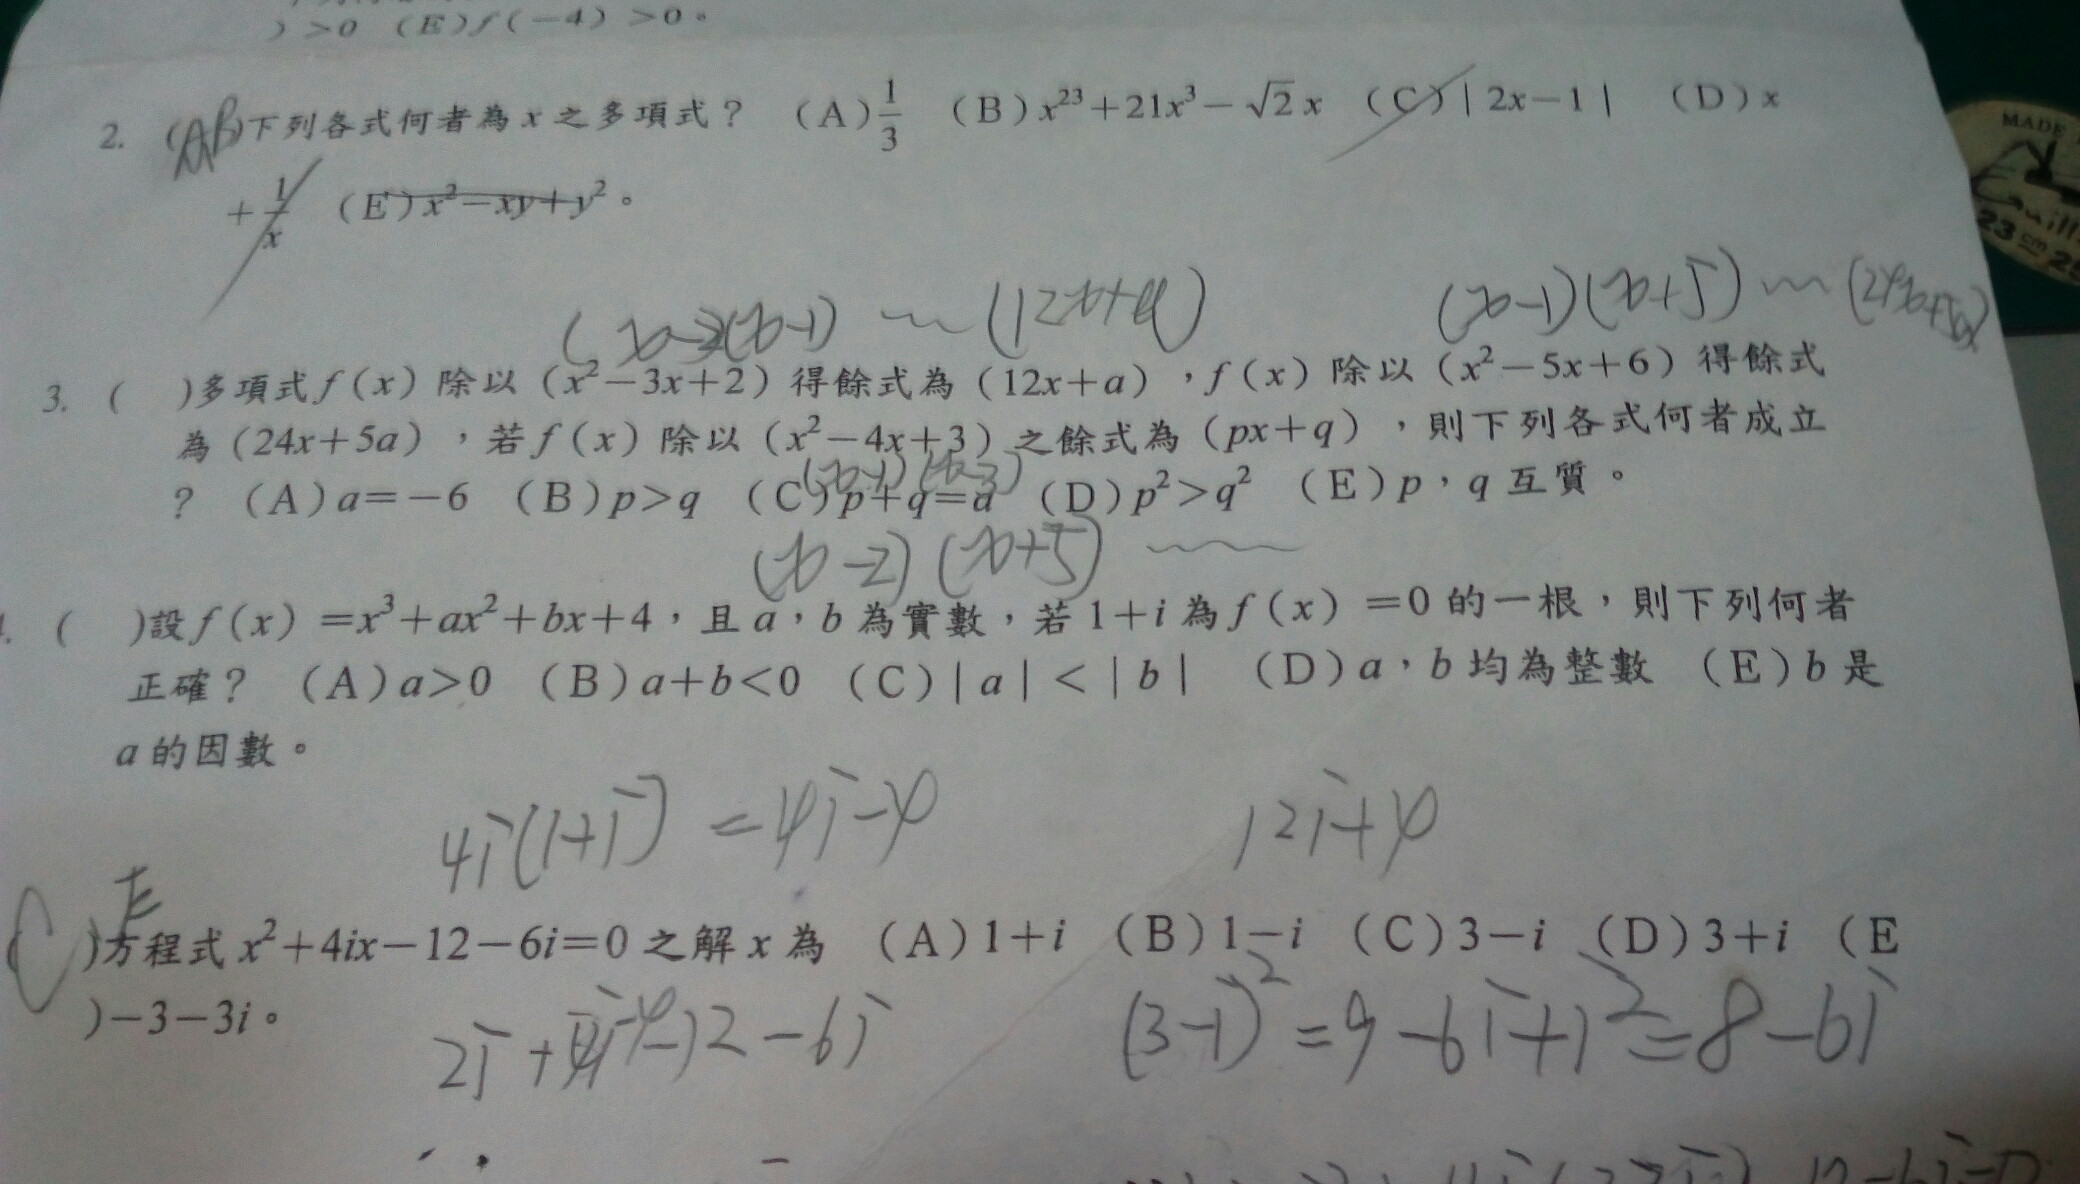 ) >0 (E) f (-4) >0。
2. (AB)下列各式何者為 x 之多項式？ (A) 1/3 (B) x²³+21x³-√2 x (C) | 2x-1 | (D) x
+ 1/x (E) x²-xy+y²。
(x-2)(x-1) ~ (12x+a) (x-1)(x+5) ~ (24x+5a)
3. ( )多項式 f (x) 除以 (x²-3x+2) 得餘式為 (12x+a) ，f (x) 除以 (x²-5x+6) 得餘式
為 (24x+5a) ，若 f (x) 除以 (x²-4x+3) 之餘式為 (px+q) ，則下列各式何者成立
(x-1)(x-3)
？ (A) a=-6 (B) p>q (C) p+q=a (D) p²>q² (E) p，q 互質。
(x-2) (x+5) ~
( )設 f (x) =x³+ax²+bx+4，且 a，b 為實數，若 1+i 為 f (x) =0 的一根，則下列何者
正確？ (A) a>0 (B) a+b<0 (C) | a | < | b | (D) a，b 均為整數 (E) b 是
a 的因數。
4i(1+i) = 4i-4 12i+4
C E
)方程式 x²+4ix-12-6i=0 之解 x 為 (A) 1+i (B) 1-i (C) 3-i (D) 3+i (E
)-3-3i。
2i+4i-4-12-6i (3-i)²=9-6i+i²=8-6i
MADE
23 cm